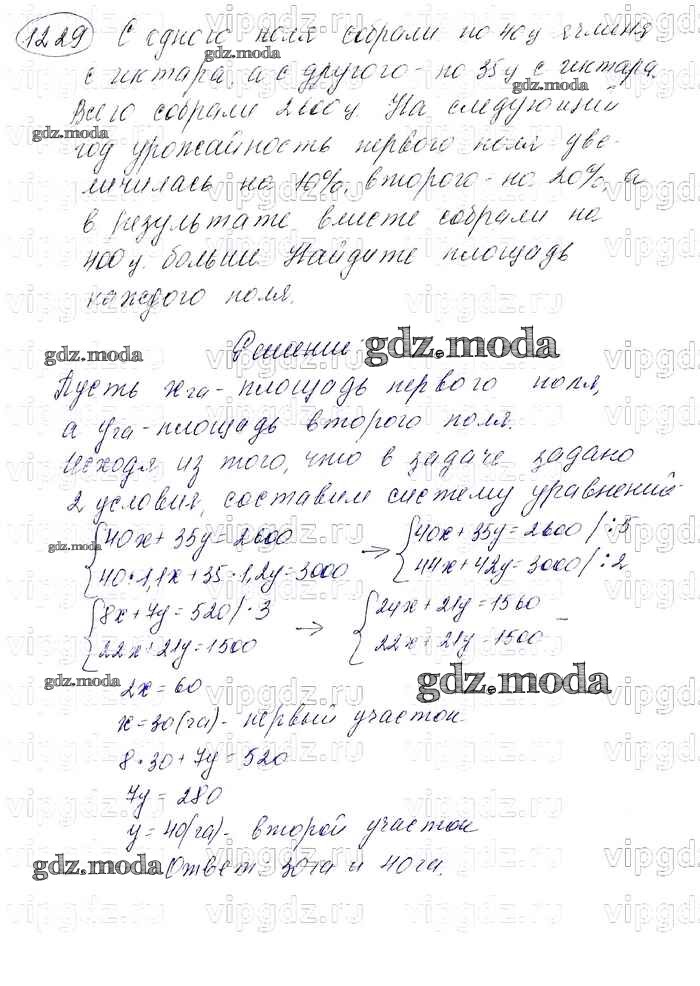 1229 С одного поля собрали по 40ц ячменя
с гектара, а с другого - по 35ц с гектара.
Всего собрали 2600ц. На следующий
год урожайность первого поля уве-
личилась на 10%, второго - на 20%, а
в результате вместе собрали на
400ц больше. Найдите площадь
каждого поля.
Решение
Пусть x га - площадь первого поля,
а y га - площадь второго поля.
Исходя из того, что в задаче задано
2 условия, составим систему уравнений
{40x + 35y = 2600 → {40x + 35y = 2600 | :5
{40·1,1x + 35·1,2y = 3000 {44x + 42y = 3000 | :2
{8x + 7y = 520 | ·3 → {24x + 21y = 1560 –
{22x + 21y = 1500 {22x + 21y = 1500
2x = 60
x = 30 (га) - первый участок
8·30 + 7y = 520
7y = 280
y = 40 (га) - второй участок
Ответ: 30га и 40га.
gdz.moda
vipgdz.ru